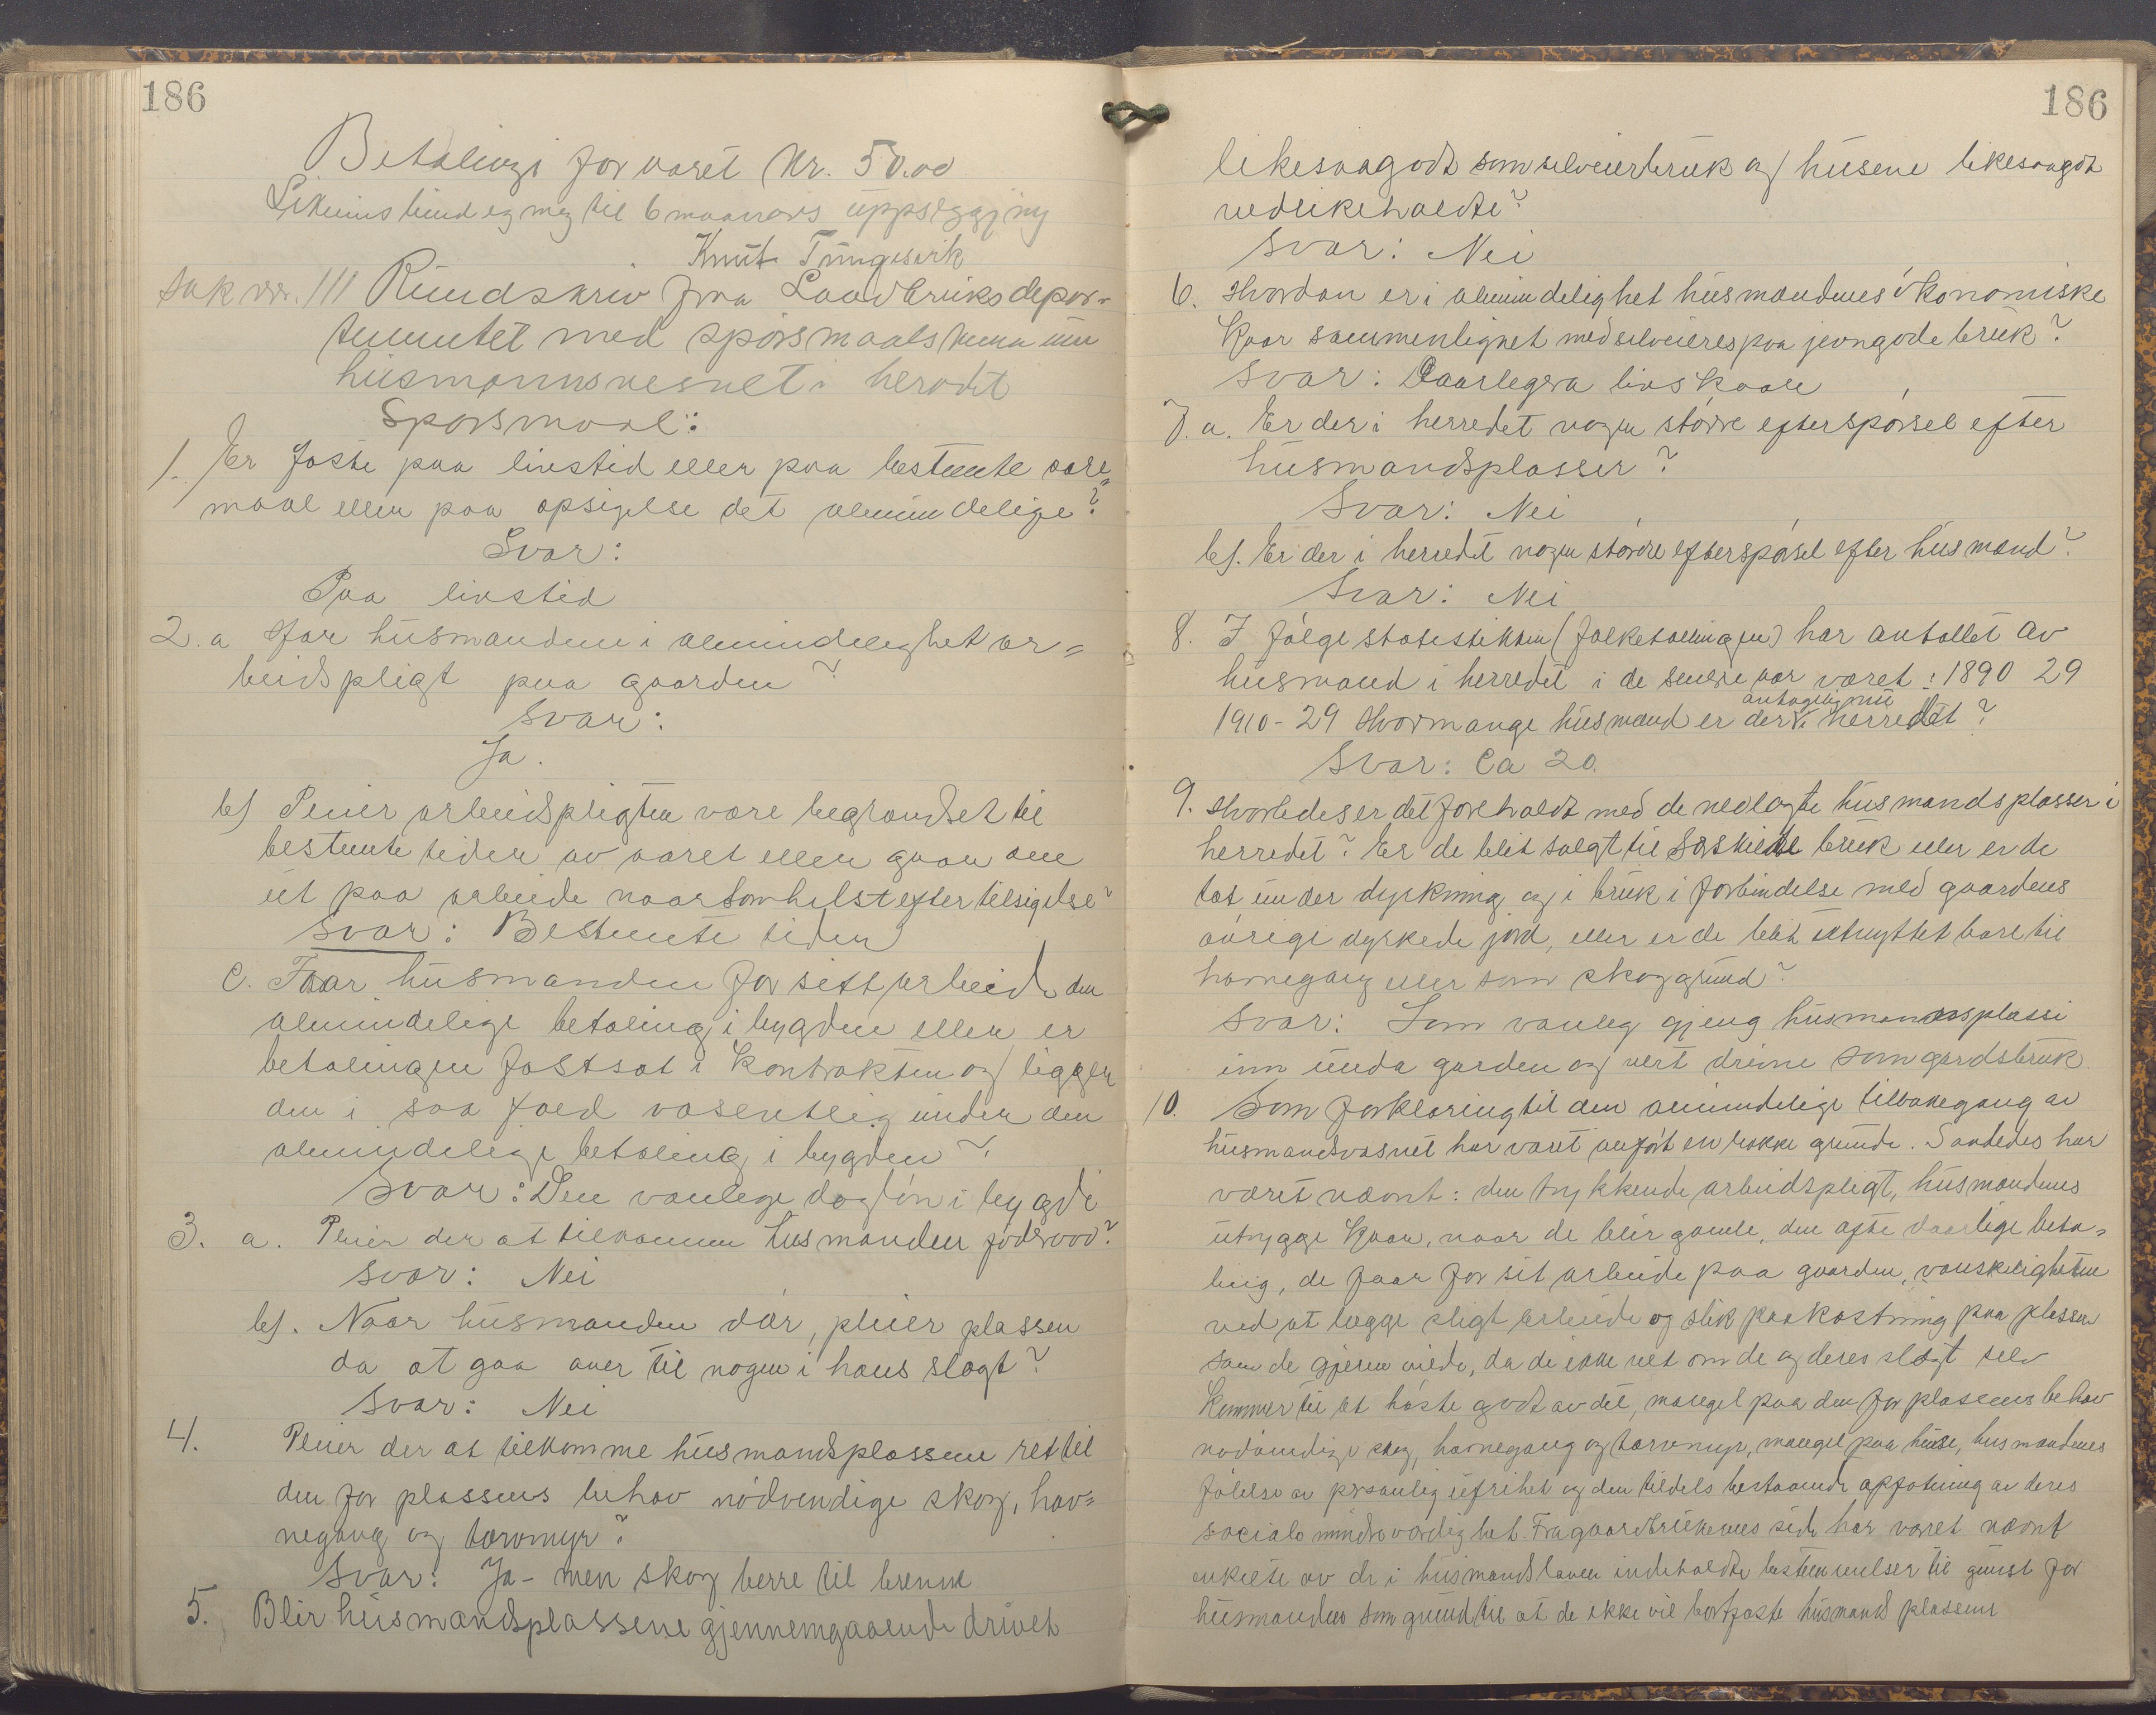 186
Betaling for aaret Kr. 50.00
Likeins bind eg meg til 6 maanars uppseggjing
Knut Tungesvik
Sak nr. 111 Rundskriv fraa Landbruksdepar-
tementet med spörsmaalskema um
husmannsvesnet i heradet
Spörsmaal:
1. Er fæste paa livstid eller paa bestemte aare-
maal eller paa opsigelse det almindelige?
Svar:
Paa livstid
2. a Har husmændene i almindelighet ar=
beidspligt paa gaarden?
Svar:
Ja.
b) Pleier arbeidspligten være begrændset til
bestemte tider av aaret eller gaar den
ut paa arbeide naarsomhelst efter tilsigelse?
Svar: Bestemte tider
c. Faar husmanden for sitt arbeide den
almindelige betaling i bygden eller er
betalingen fastsat i kontrakten og ligger
den i saa fald væsentlig under den
almindelige betaling i bygden?
Svar: Den vanlege daglön i bygdi
3. a. Pleier der at tilkomme husmanden föderaad?
Svar: Nei
b). Naar husmanden dör, pleier plassen
da at gaa over til nogen i hans slægt?
Svar: Nei
4. Pleier der at tilkomme husmandsplassene ret til
den for plassens behov nödvendige skog, hav=
negang og torvmyr?
Svar: Ja - men skog berre til brenne
5. Blir husmandsplassene gjennemgaaende drivet
186
likesaagodt som selveierbruk og husene likesaagodt
vedlikeholdte?
Svar: Nei
6. Hvordan er i almindelighet husmændenes ökonomiske
kaar sammenlignet med selveieres paa jevngode bruk?
Svar: Daarlegera livskaar
7. a. Er der i herredet nogen större efterspörsel efter
husmandsplasser?
Svar: Nei
b). Er der i herredet nogen större efterspörsel efter husmænd?
Svar: Nei
8. I fölge statistikken (folketællingen) har antallet av
husmænd i herredet i de senere aar været: 1890 29
antagelig nu
1910 - 29 Hvormange husmænd er der i herredet?
Svar: Ca 20.
9. Hvorledes er det forholdt med de nedlagte husmandsplasser i
herredet? Er de blit solgt til særskilte bruk eller er de
tat under dyrkning og i bruk i forbindelse med gaardens
övrige dyrkede jord, eller er de blit utnyttet bare til
havnegang eller som skoggrund?
Svar: Som vanleg gjeng husmannsplassi
inn unda garden og vert drivne som gardsbruk
10. Som forklaring til den almindelige tilbakegang av
husmandsvæsnet har været anfört en række grunde. Saaledes har
været nævnt: den trykkende arbeidspligt, husmændenes
utrygge kaar, naar de blir gamle, den ofte daarlige beta=
ling, de faar for sit arbeide paa gaarden, vanskeligheten
ved at lægge sligt arbeide og slik paakostning paa plassen
som de gjerne vilde, da de ikke vet om de og deres slægt selv
kommer til at höste godt av det, mangel paa den for plassens behov
nödvendige skog, havnegang og torvmyr, mangel paa huse, husmændenes
fölelse av personlig ufrihet og den tildels bestaaende opfatning av deres
sociale mindreværdighet. Fra gaardbrukernes side har været nævnt
enkelte av de i husmandsloven indeholdte bestemmelser til gunst for
husmanden som grund til at de ikke vil bortfæste husmandsplassene